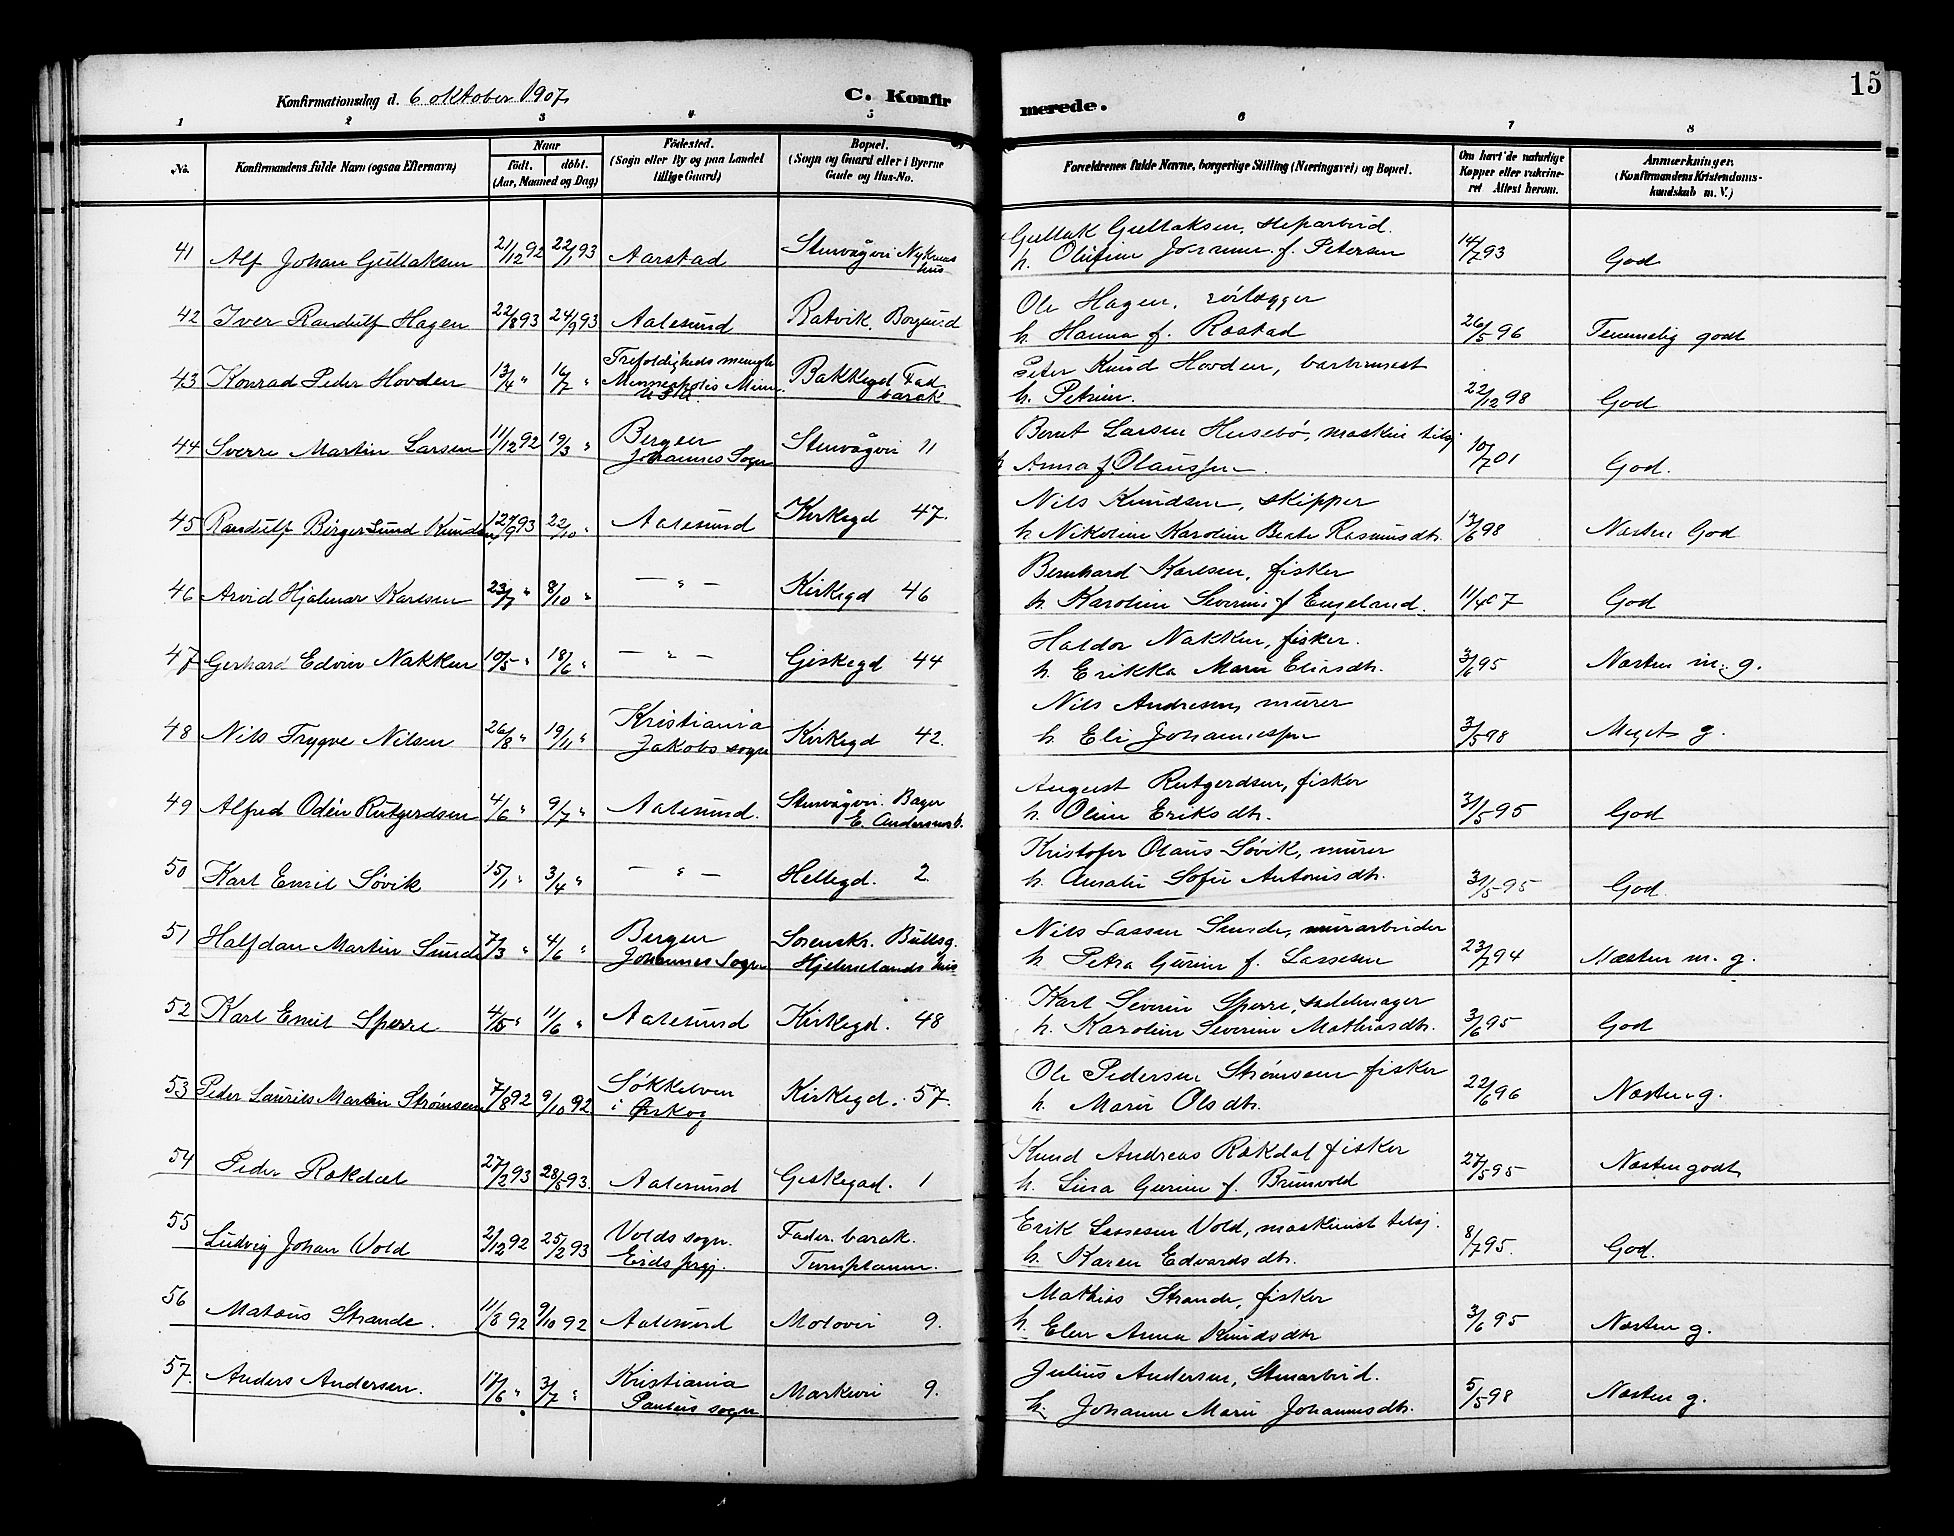 15
Konfirmationsdag d. 6 oktober 1907.
C. Konfirmerede.
1 2 3 4 5 6 7 8
No. Konfirmandens fulde Navn (ogsaa Efternavn) Naar födt. döbt. (Aar, Maaned og Dag) Födested. (Sogn eller By og paa Landet tillige Gaard) Bopæl. (Sogn og Gaard eller i Byerne Gade og Hus-No. Forældrenes fulde Navne, borgerlige Stilling (Næringsvei) og Bopæl. Om havt de naturlige Kopper eller vaccineret Attest herom. Anmærkninger. (Konfirmandens Kristendomskundskab m. V.)
41 Alf Johan Gullaksen 21/12 92 22/1 93 Aarstad Stenvågvei Nykrems hus Gullak Gullaksen, h. Olufine Johanne f. Petersen 14/7 93 God
42 Iver Randulf Hagen 22/8 93 24/9 93 Aalesund Ratvik, Borgund Ole Hagen, rörlægger h. Hanna f. Rastad 26/5 96 Temmelig godt
43 Konrad Peder Hovden 13/4 " 16/7 " Trefoldigheds mengh. Minneapolis Minn. U.S.A. Bakkegd Fad. barak Peter Knud Hovden, h. Petrine. 22/12 98 God
44 Sverre Martin Larsen 11/12 92 19/3 " Bergen Johannes Sogn Stenvågvei 11 Bernt Larsen Husebö, maskin tilsj h Anna f. Olaussen. 10/7 01 God.
45 Randulf Birger Lund Knudsen 12/9 93 22/10 " Aalesund Kirkegd 47. Nils Knudsen, skipper h Nikoline Karoline Beate Rasmusdtr. 13/6 98 Næsten God
46 Arvid Hjalmar Karlsen 23/7 " 8/10 " — " — Kirkegd 46 Bernhard Karlsen, fisker h. Karoline Severine f Engeland. 11/4 07 God
47 Gerhard Edvin Nakken 10/5 " 18/6 " — " — Giskegd 44 Haldor Nakken, fisker. h. Erikka Marie Eliasdtr. 3/6 95 Næsten m. g.
48 Nils Trygve Nilsen 26/8 " 19/11 " Kristiania Jakobs sogn Kirkegd 42. Nils Andresen, murer h. Eli Johannessen 3/5 98 Meget g.
49 Alfred Odén Rutgerdsen 4/6 " 9/7 " Aalesund. Stenvågvei. Bager E. Andersens h. August Rutgerdsen, fisker h. Oline Eriksdtr. 31/5 95 God
50 Karl Emil Søvik 15/1 " 3/4 " — " — Hellegd. 2. Kristofer Olaus Søvik, murer h. Amalie Sofie Antonisdtr. 31/5 95 God.
51 Halfdan Martin Sunde 7/3 " 4/6 " Bergen Johannes Sogn Sorenskr. Bullsg. Hjelmelands hus Nils Lassen Sunde, murarbeider h. Petra Gurine f. Lassesen 23/7 94 Næsten m. g.
52 Karl Emil Sperre 4/5 " 11/6 " Aalesund Kirkegd. 48 Karl Severin Sperre, sadelmager h. Karoline Severine Mathiasdtr. 3/6 95 God
53 Peder Laurits Martin Strømsen 7/8 92 9/10 92 Søkkelven i Ørskog Kirkegd. 57. Ole Pedersen Strømsem fisker h. Marie Olsdtr. 22/6 96 Næsten g.
54 Peder Rokdal 27/2 93 28/5 93. Aalesund Geskegad. 1 Knud Andreas Rokdal fisker h. Lina Gurine f. Brunvold 27/5 95 Næsten godt
55 Ludvig Johan Vold 2/12 92 25/2 93 Volds sogn. Eids prgj. Fader. barak. Turnplanen. Erik Lassesen Vold, maskinist tilsj. h. Karen Edvardsdtr. 8/7 95. God.
56 Mataus Strande. 11/8 92 9/10 92 Aalesund Molovei 9. Mathias Strande, fisker h. Elen Anna Knudsdtr 3/6 95 Næsten g.
57. Anders Andersen. 17/6 " 3/7 " Kristiania Paulus sogn Markvei 9. Julius Andersen, Stenarbeid. h. Johanne Marie Johannesdtr. 5/5 98 Næsten g.